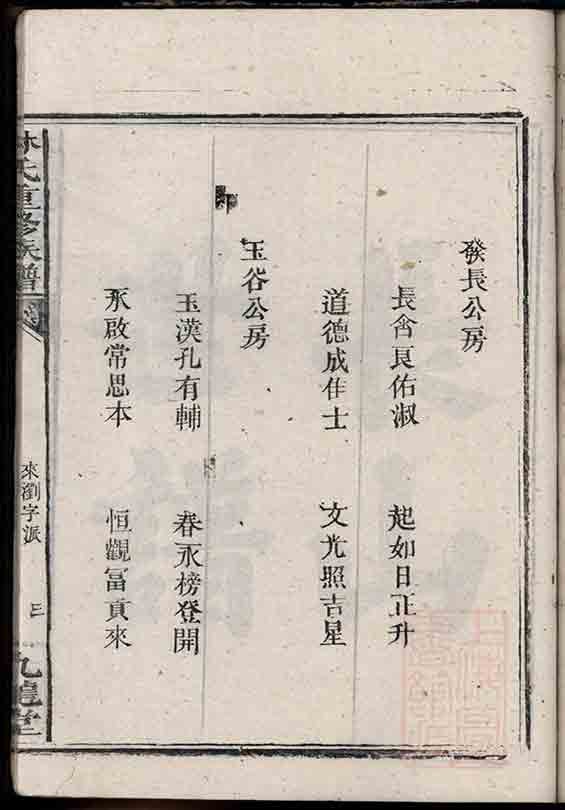 發長公房
長含艮佑淑　起如日正升
道德成佳士　文光照吉星
玉谷公房
玉漢孔有輔　春永榜登開
永啟常思本　恒觀冨貢來
林氏重修族譜
來瀏字派
三
九龍堂